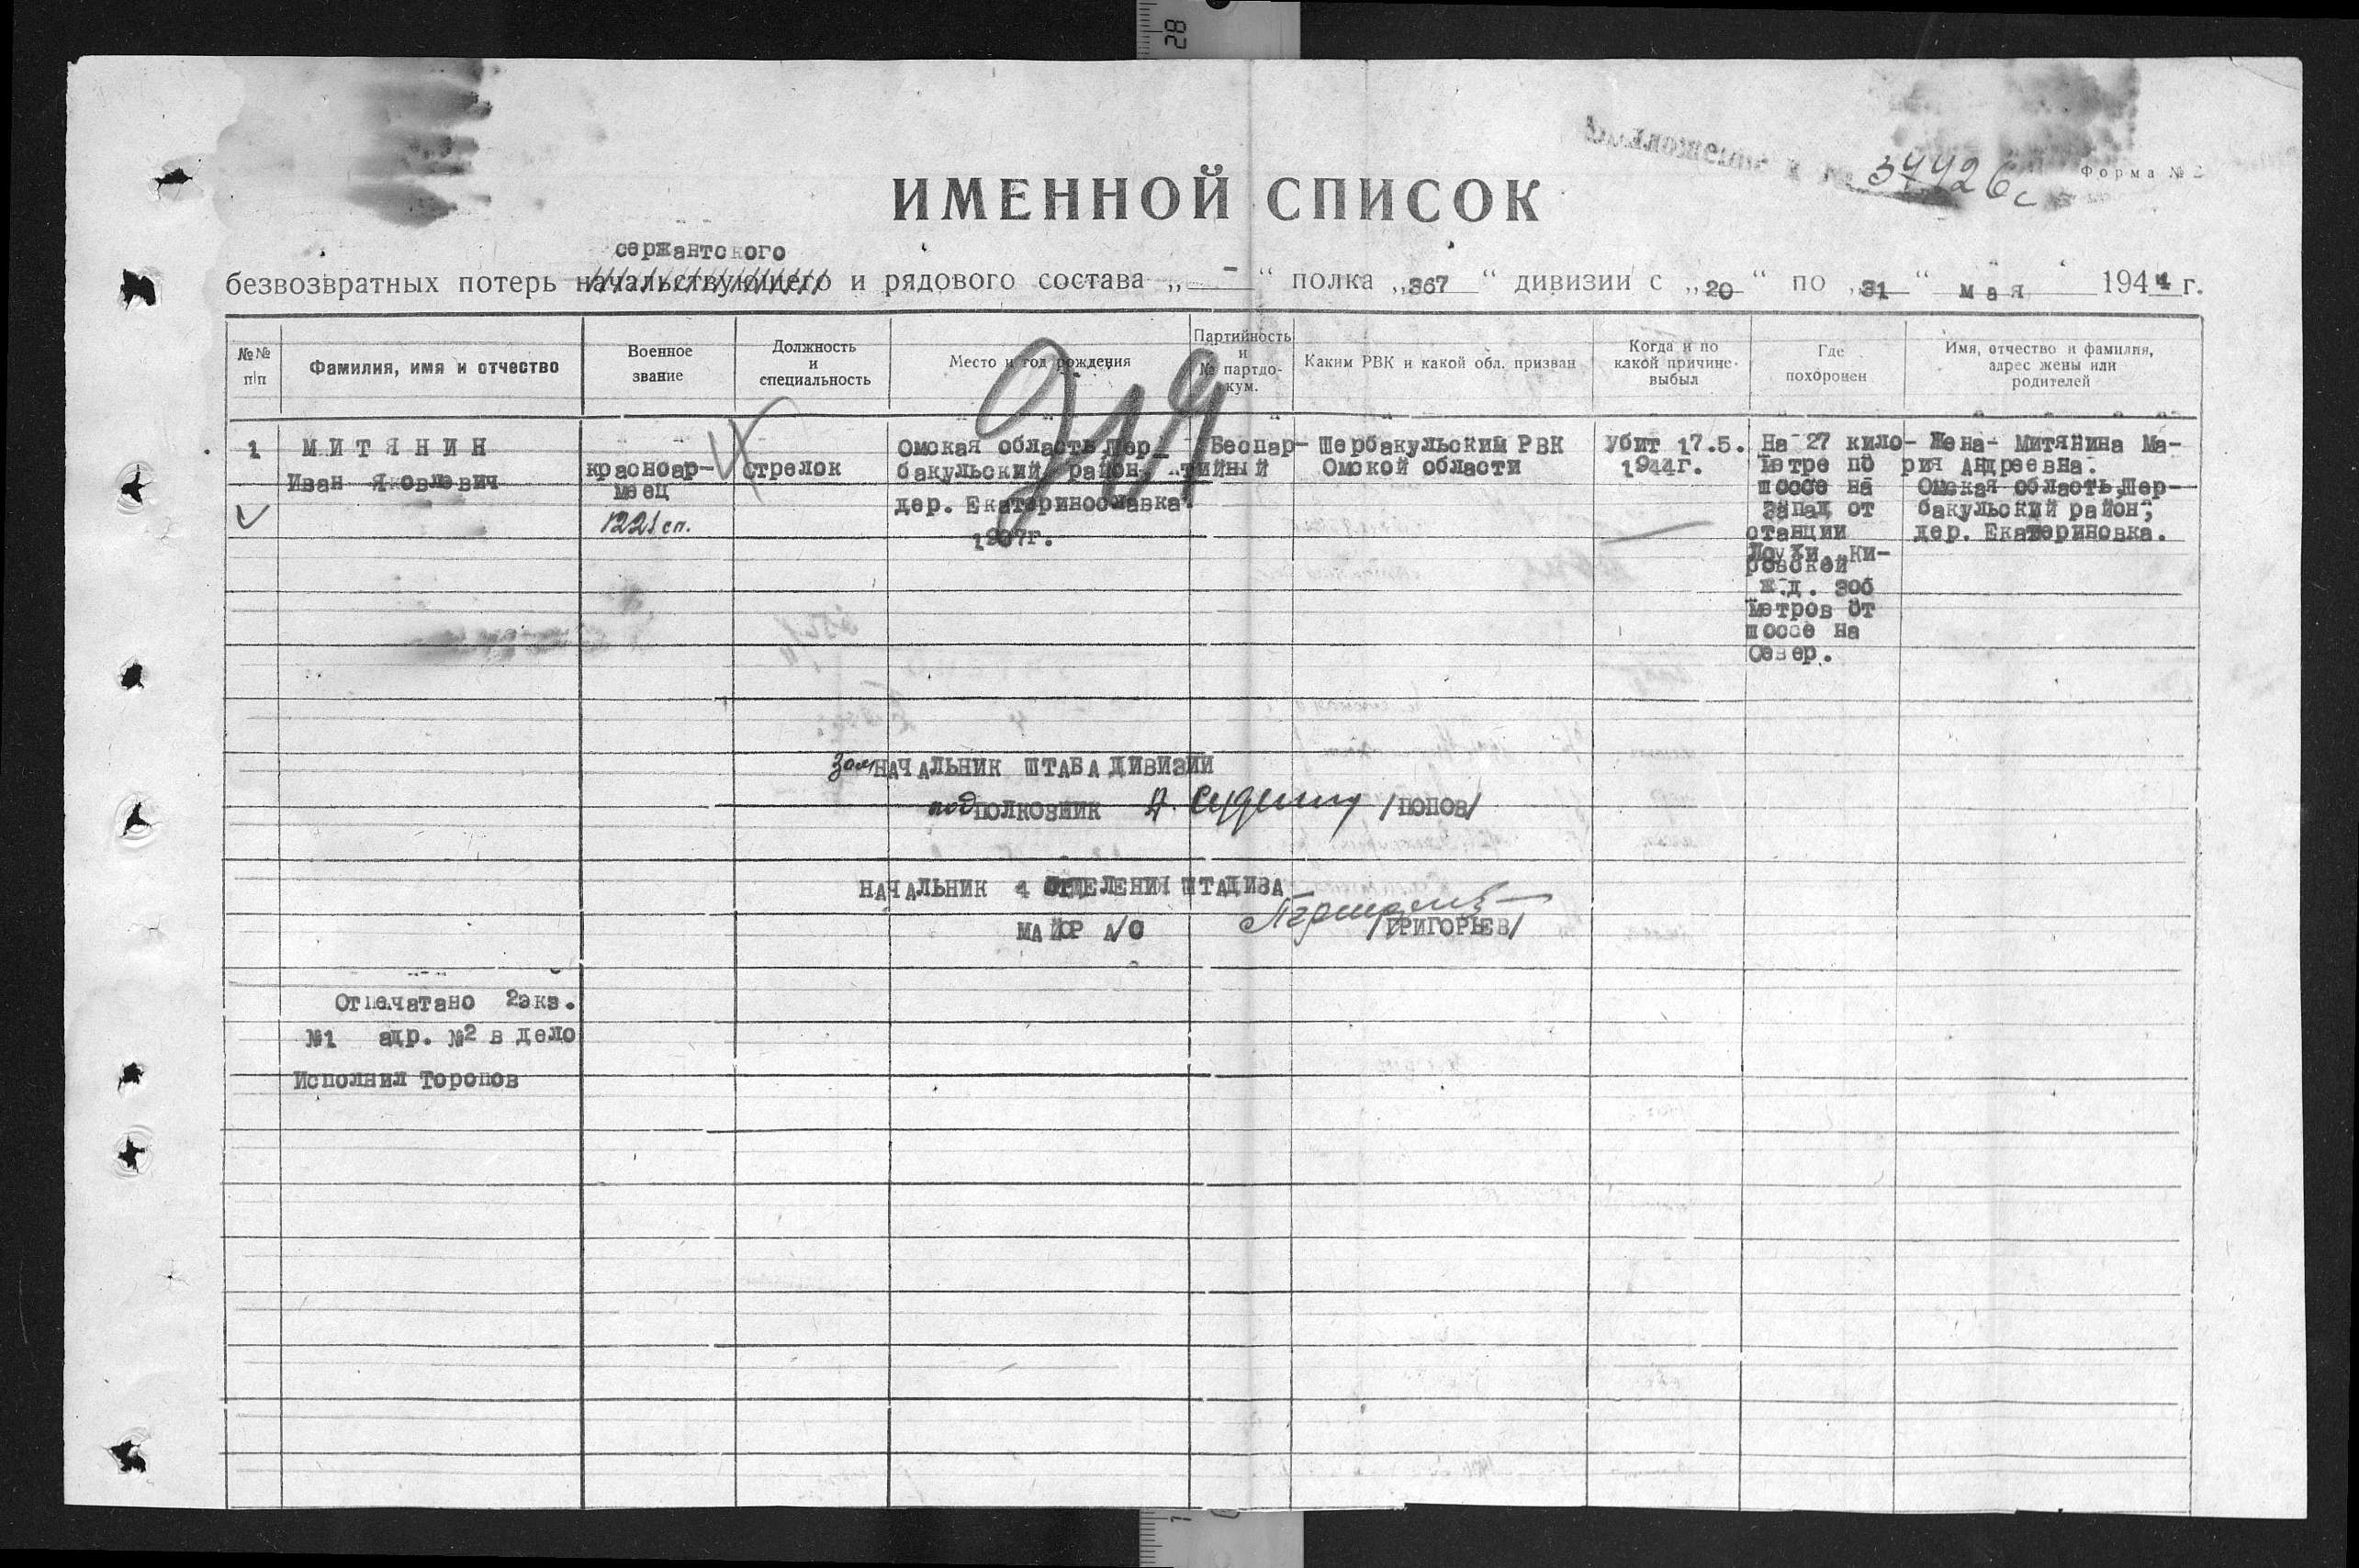 28
34426с
Форма № 2
ИМЕННОЙ СПИСОК
сержантского
безвозвратных потерь начальствующего и рядового состава „ - “ полка „367 “ дивизии с „20 “ по „31 “ мая 1944 г.
№№ п/п
Фамилия, имя и отчество
Военное звание
Должность и специальность
Место и год рождения
Партийность и № партдокум.
Каким РВК и какой обл. призван
Когда и по какой причине выбыл
Где похоронен
Имя, отчество и фамилия, адрес жены или родителей
1
МИТЯНИН
Иван Яковлевич
красноар-
меец
1221 сп.
стрелок
Омская область, Шер-
бакульский район,
дер. Екатеринославка.
1907г.
Беспар-
тийный
Шербакульским РВК
Омской области
Убит 17.5.
1944г.
На 27 кило-
метре по
шоссе на
запад от
станции
Лоухи, Ки-
ровской
ж.д. 300
метров от
шоссе на
Север.
Жена- Митянина Ма-
рия Андреевна.
Омская область, Шер-
бакульский район,
дер. Екатериновка.
Зам НАЧАЛЬНИК ШТАБА ДИВИЗИИ
подПОЛКОВНИК /ПОПОВ/
НАЧАЛЬНИК 4 ОТДЕЛЕНИЯ ШТАДИВА
МАЙОР А/С /ГРИГОРЬЕВ/
Отпечатано 2экз.
№1 адр. №2 в дело
Исполнил Торопов
1